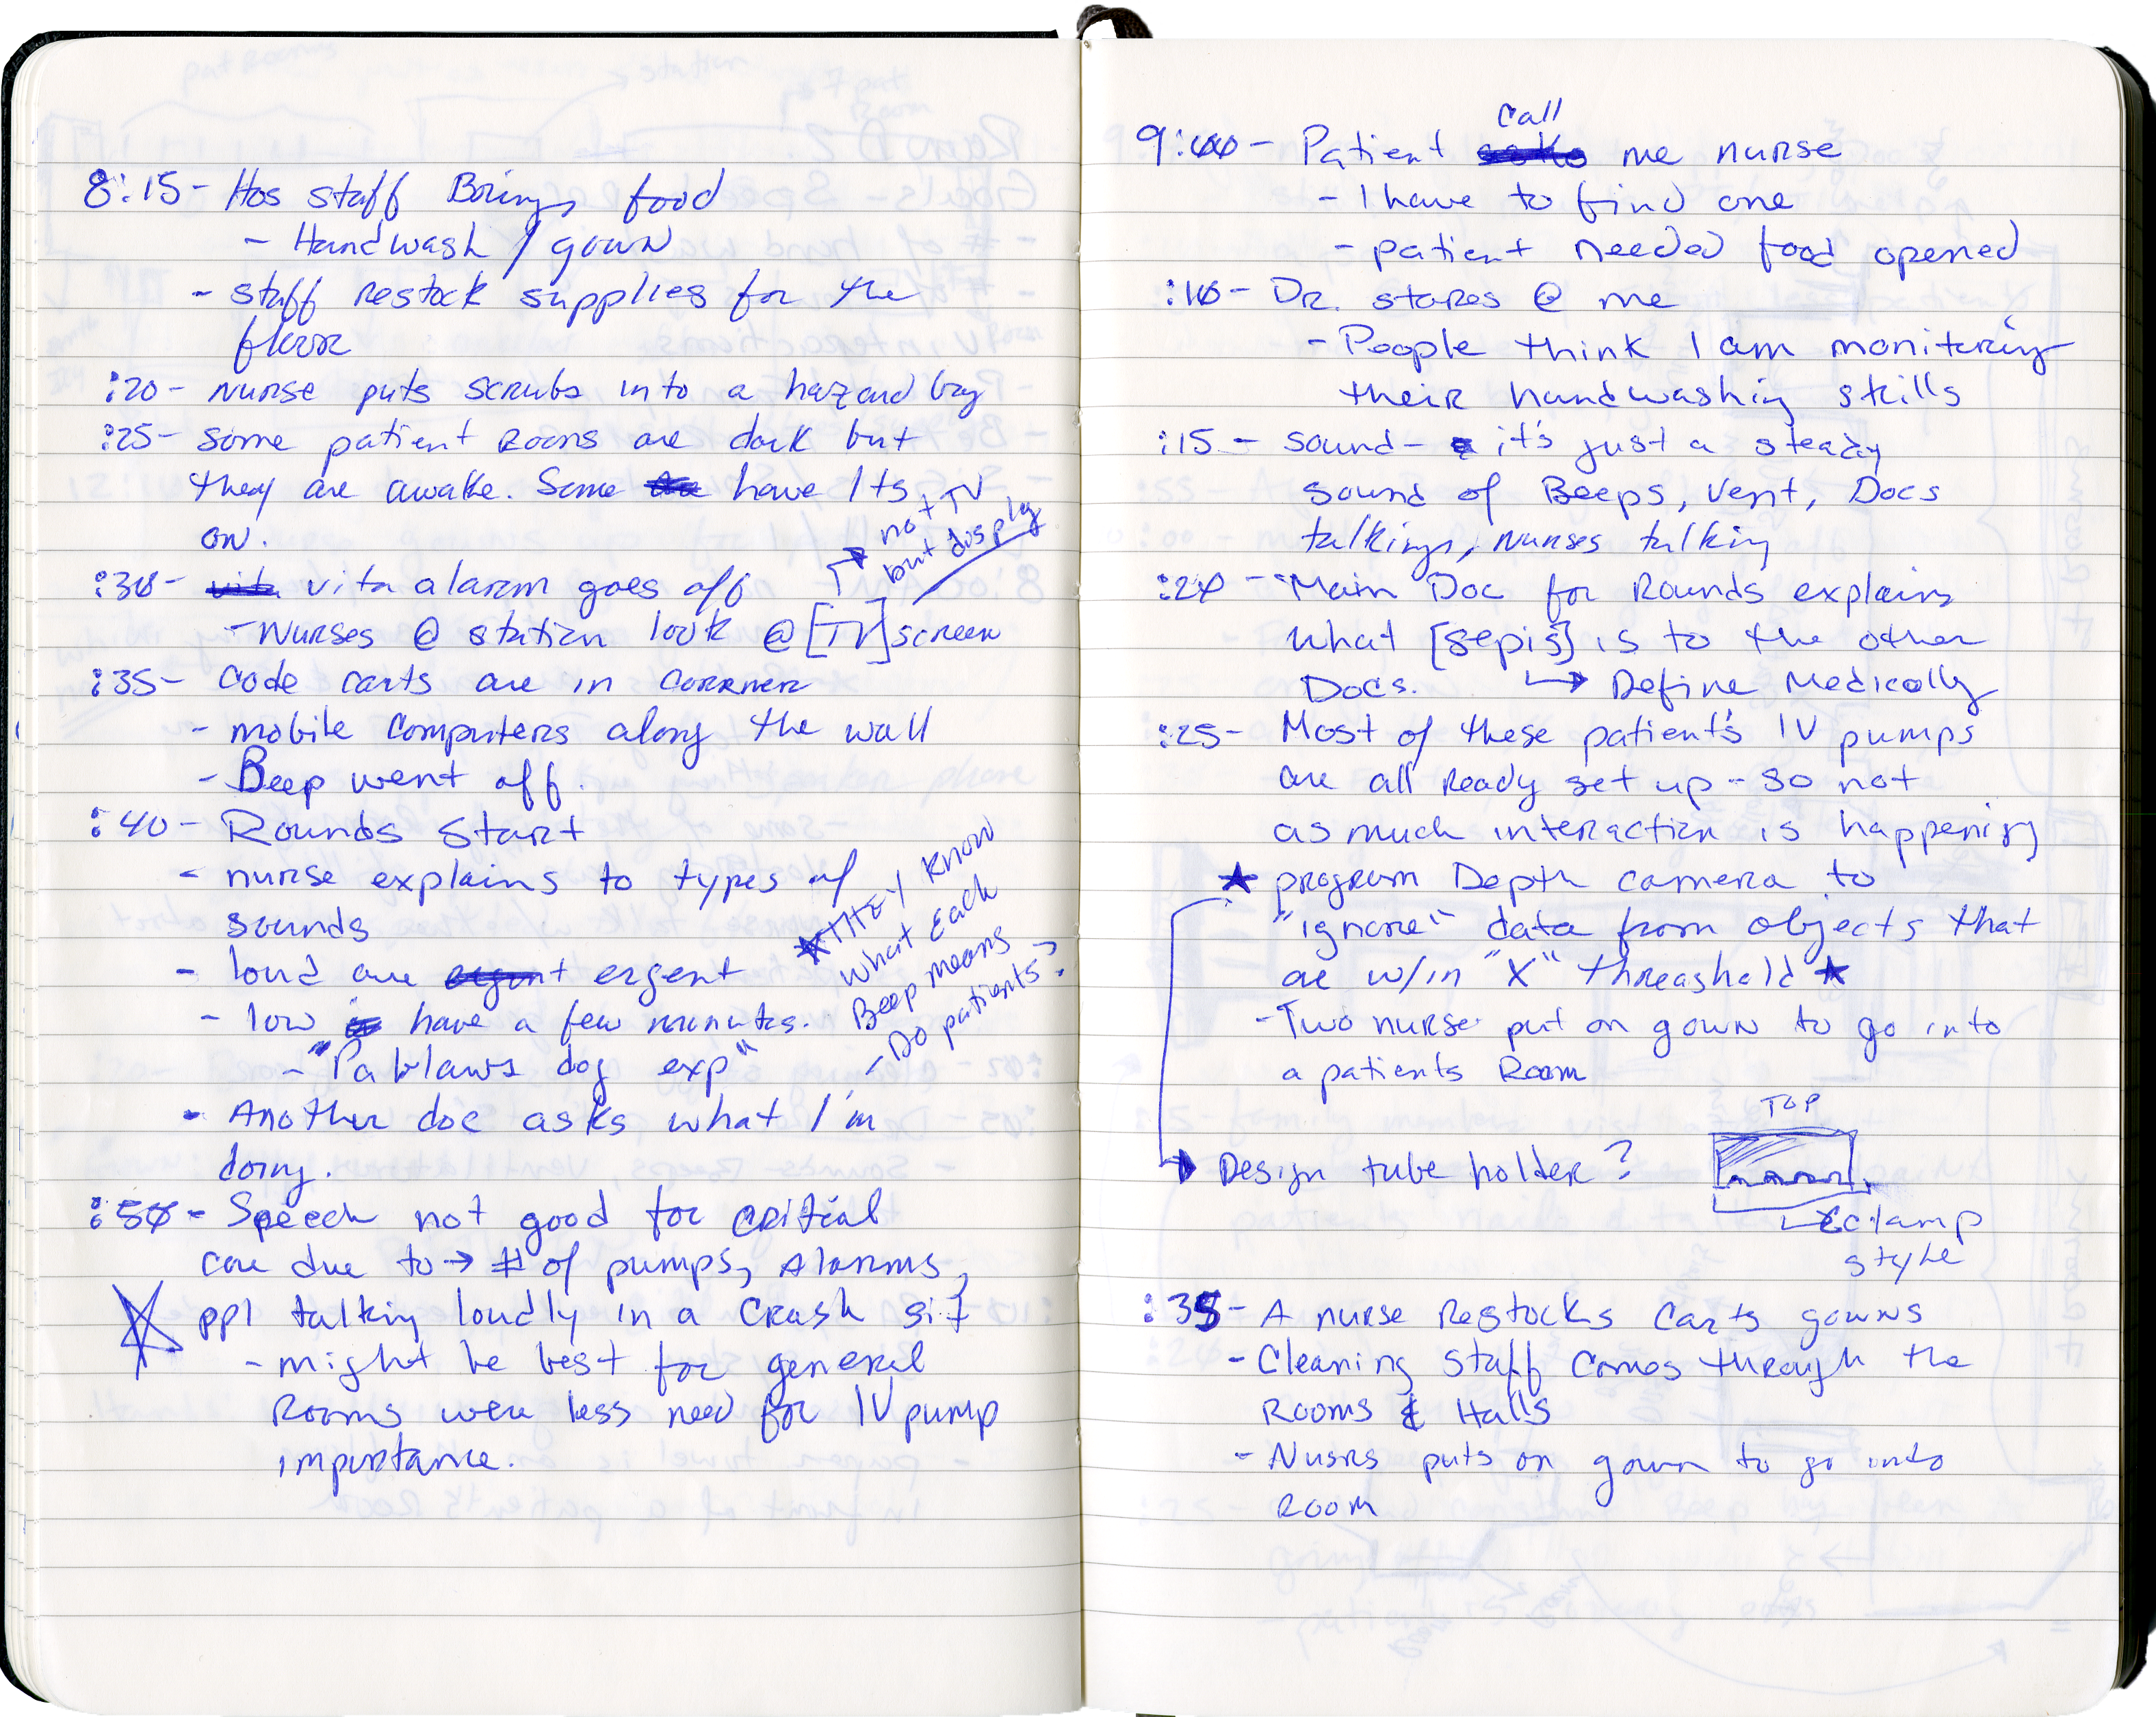 8:15 - Hos staff Brings food
- Handwash / gown
- staff restock supplies for the
floor
:20 - Nurse puts scrubs into a hazard bag
:25 - Some patient Rooms are dark but
they are awake. Some have lts
on.
:30 - vita alarm goes off
- Nurses @ station look @ [TV] screen
not TV
but display
:35 - Code carts are in corrner
- mobile computers along the wall
- Beep went off.
:40 - Rounds Start
- nurse explains to types of
sounds
- loud are ergent
- low have a few minutes.
- "Pablaws dog exp"
★ THEY KNOW
what Each
Beep means
- Do patients?
- Another doc asks what I'm
doing.
:50 - Speech not good for critial
care due to → # of pumps, Alarms,
ppl talking loudly in a Crash sit
- might be best for general
Rooms were less need for IV pump
importance.
9:00 - Patient call me nurse
- I have to find one
- patient needed food opened
:10 - Dr. stares @ me
- People think I am monitering
their handwashing skills
:15 - Sound - it's just a steady
sound of Beeps, Vent, Docs
talking, nurses talking
:20 - Main Doc for Rounds explains
what [sepis] is to the other
Docs. ↳ Define Medically
:25 - Most of these patient's IV pumps
are all Ready set up - so not
as much interaction is happening
★ program Depth camera to
"ignore" data from objects that
are w/in "X" threashold ★
- Two nurse put on gown to go into
a patients Room
TOP
→ Design tube holder?
clamp
style
:35 - A nurse Restocks Carts gowns
- Cleaning Staff Comes through the
Rooms & Halls
- Nusrs puts on gown to go into
Room